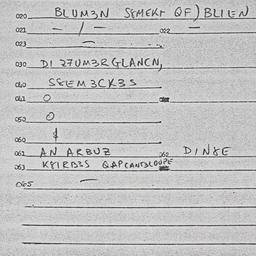 020 BLUM3N SEMEKT QF) BLIEN
021 - / - 022 -
023 -
030 DI 27UM3RGLANCN,
040 SEEM3CK3S
041 O
050 O
060
061 AN ARBUZ 062 DINEE
063 KEIRB3S QAPCANTALOUPE
065 -